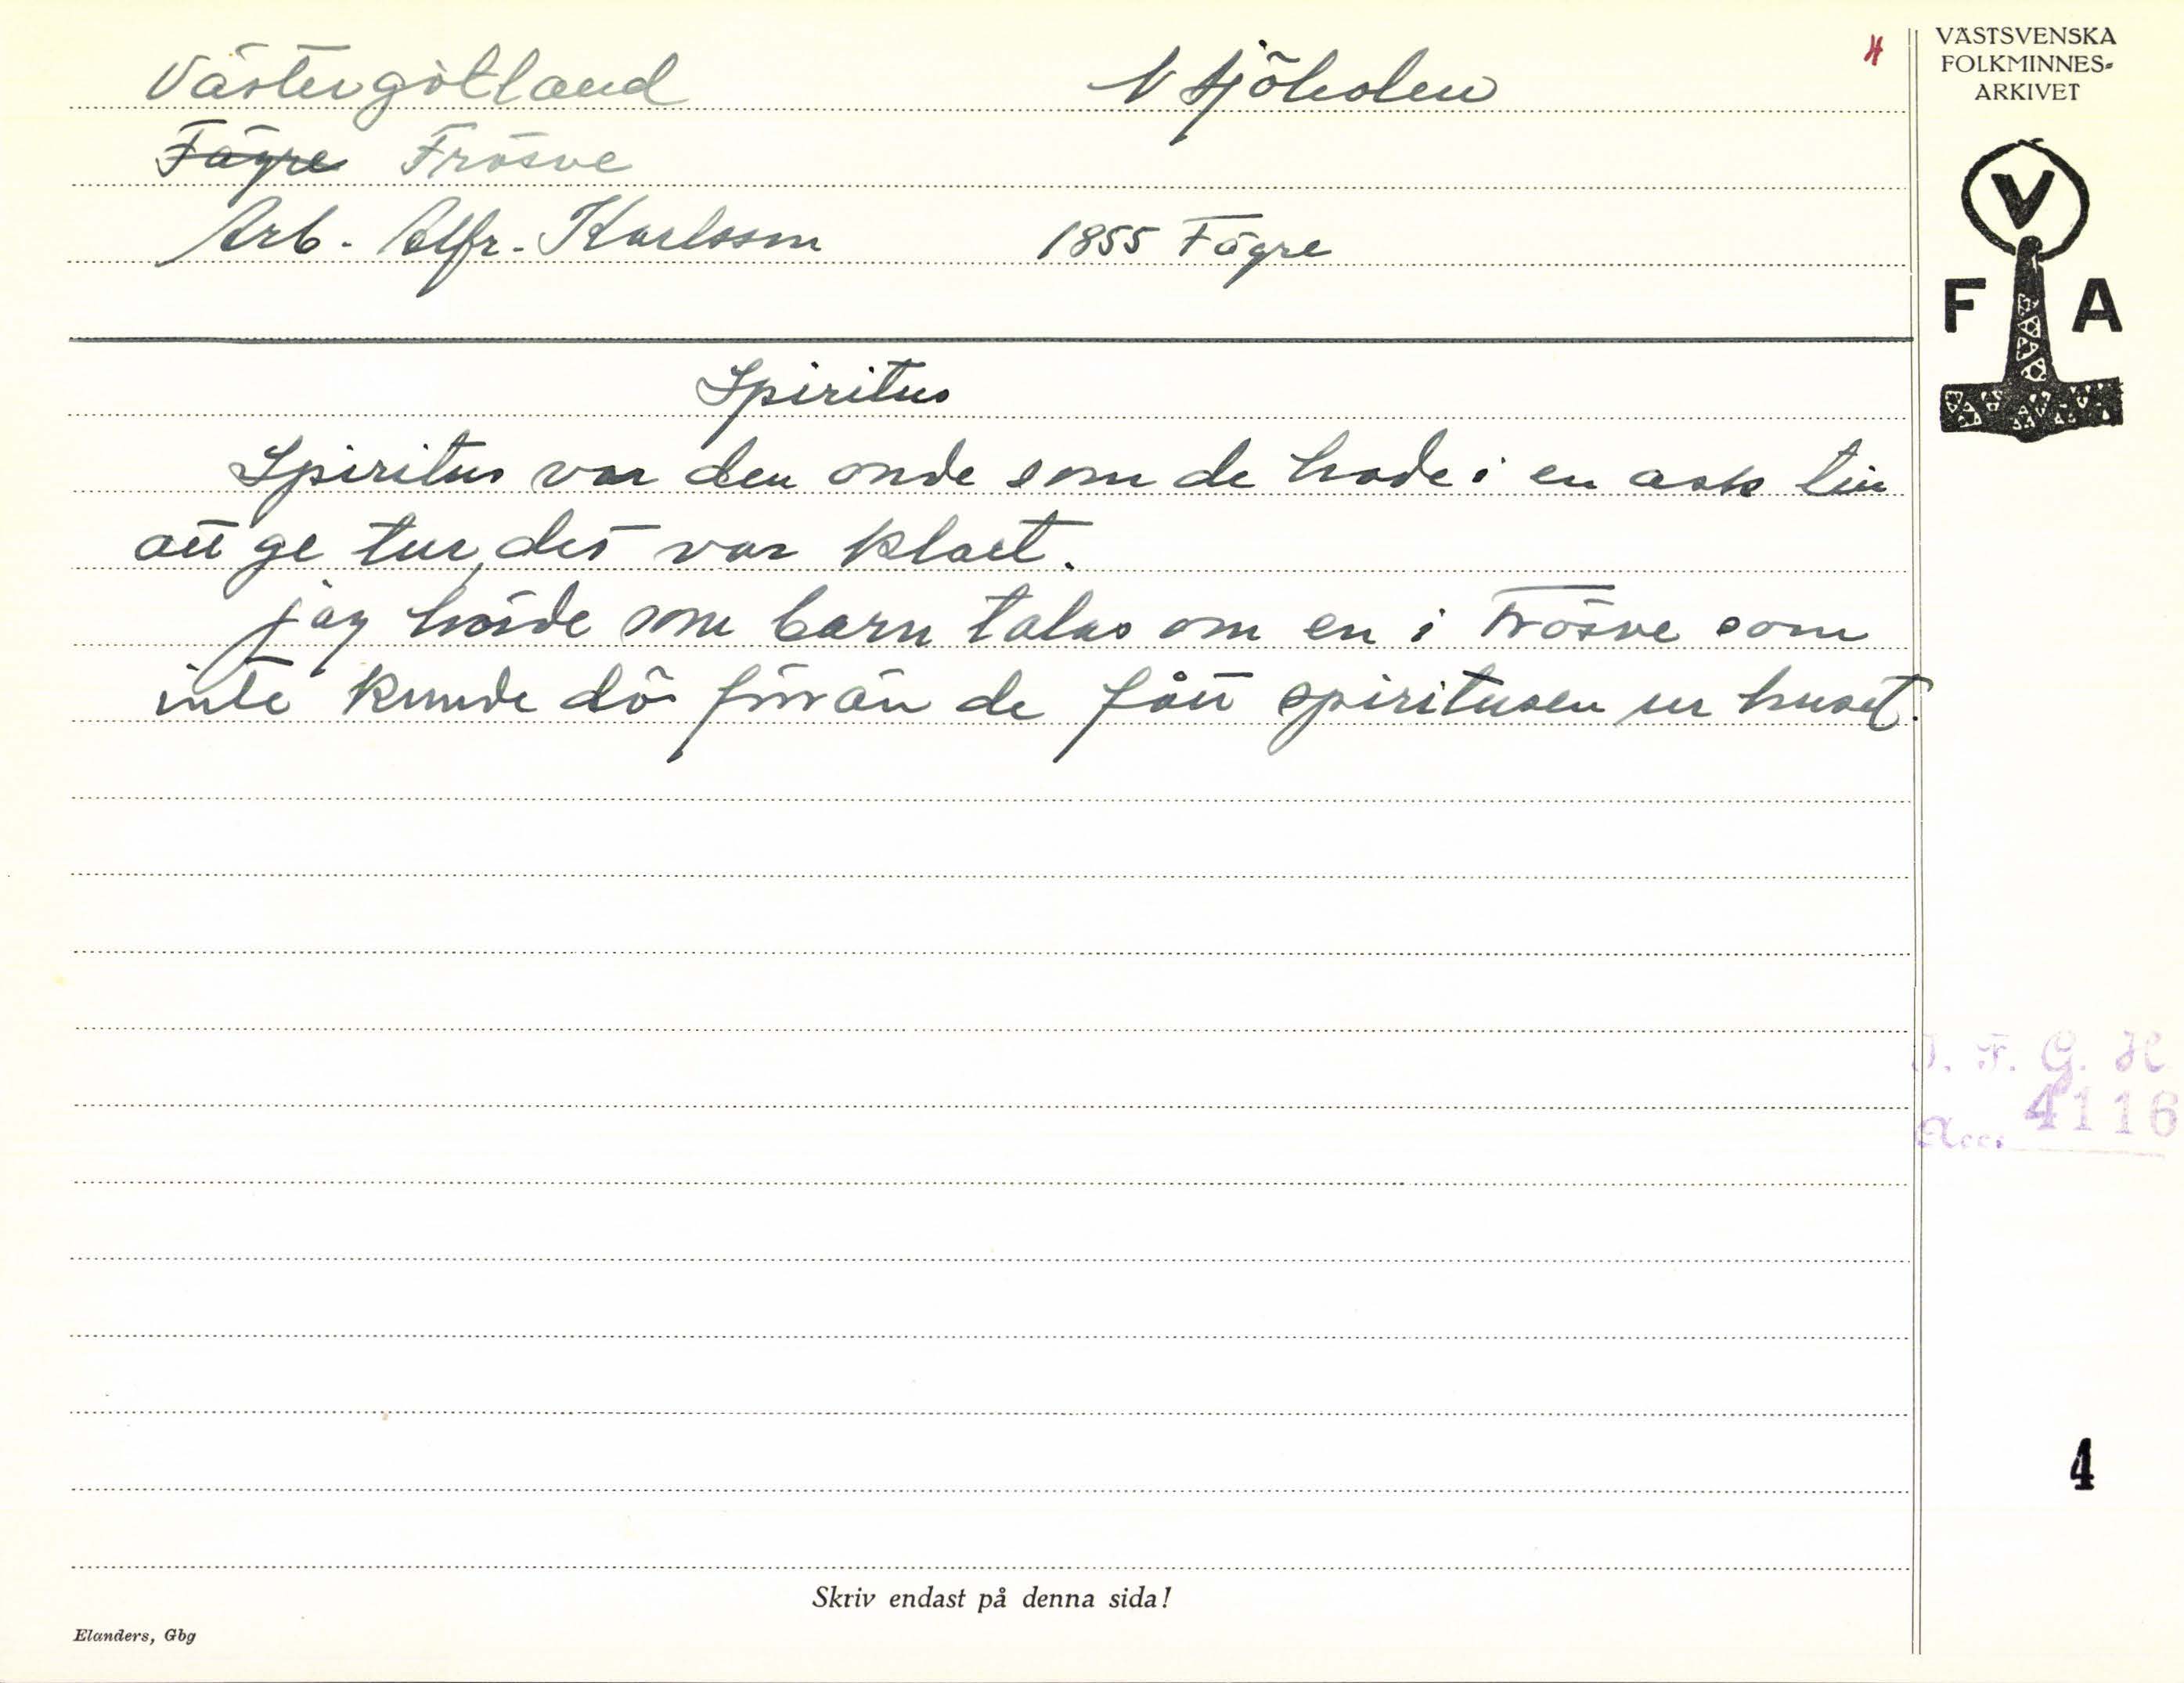 Västergötland N Sjöholm 4
VÄSTSVENSKA
FOLKMINNES-
ARKIVET
Fägre Frösve
Arb. Alfr. Karlsson 1855 Fägre
V
F A
Spiritus
Spiritus var den onde som de hade i en ask tin
att ge tur, det var klart.
jag hörde som barn talas om en i Frösve som
inte kunde dö förrän de fått spiritusen ur huset.
I. F. G. H
Acc. 4116
4
Skriv endast på denna sida!
Elanders, Gbg